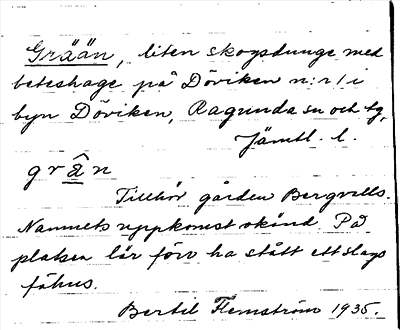 Grään, liten skogsdunge med
beteshage på Döviken n:r 1 i
byn Döviken, Ragunda sn och tg,
Jämtl. l.
grâ̱n
Tillhör gården Bergvills.
Namnets uppkomst okänd. På
platsen lär förr ha stått ett slags
fähus.
Bertil Flemström 1935.